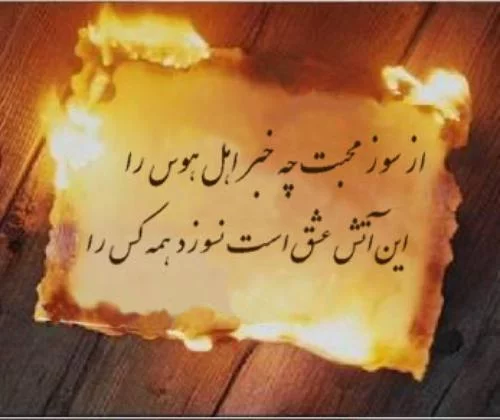 از سوز محبت چه خبر اهل هوس را
این آتش عشق است نسوزد همه کس را